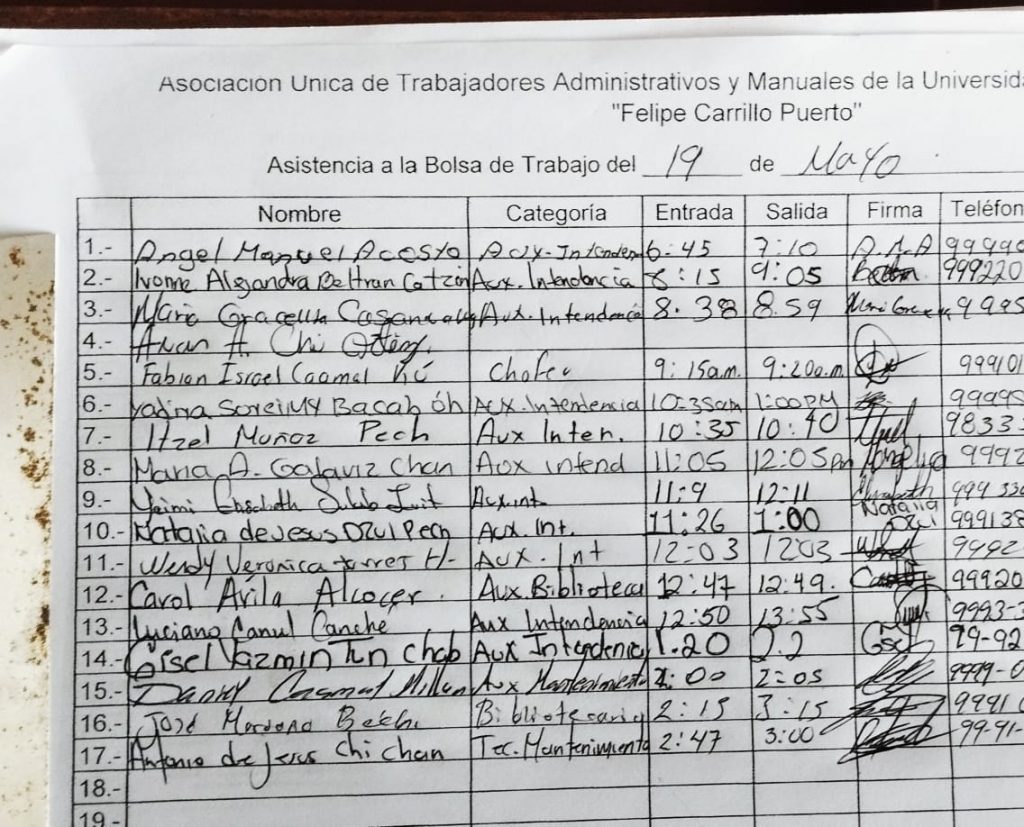 Asociación Unica de Trabajadores Administrativos y Manuales de la Universida
"Felipe Carrillo Puerto"
Asistencia a la Bolsa de Trabajo del 19 de Mayo
Nombre Categoría Entrada Salida Firma Teléfon
1.- Angel Manuel Acosta Aux-Intenden 6:45 7:10 A.M.A 99990
2.- Ivonne Alejandra Beltran Cetzin Aux. Intendencia 8:15 9:05 999220
3.- Maria Graciella Aux. Intendencia 8.38 8.59 9995
4.- A. Chi
5.- Fabian Israel Caamal Kú Chofer 9:15am. 9:20a.m. 999101
6.- Yadira Soreimy Bacab óh Aux.Intendencia 10:35am 1:00PM 99995
7.- Itzel Muñoz Pech Aux Inten. 10:35 10:40 9833-
8.- Maria A. Galaviz Chan Aux intend 11:05 12:05pm Angelica 9992
9.- Yeimi Elisabeth Aux int 11:9 12:11 Elisabeth 999 336
10.- Natalia de Jesus Dzul Pech Aux. Int. 11:26 1:00 Natalia Dzul 999138
11.- Wendy Veronica torres H- Aux. Int 12:03 1203 9992-
12.- Carol Ávila Alcocer. Aux.Biblioteca 12:47 12:49. 99920
13.- Luciano Canul Canche Aux Intendencia 12:50 13:55 9993-3
14.- Gisel Yazmin Tun Chab Aux Intendencia 1.20 2.2 Gisel 99-92
15.- Daniel Caamal Millan Aux Mantenimiento 2:00 2:05 9999-0
16.- José Moreno Bibliotecario 2:15 3:15 9991
17.- Antonio de Jesus Chi chan Tec.Mantenimiento 2:47 3:00 99-91-
18.-
19.-